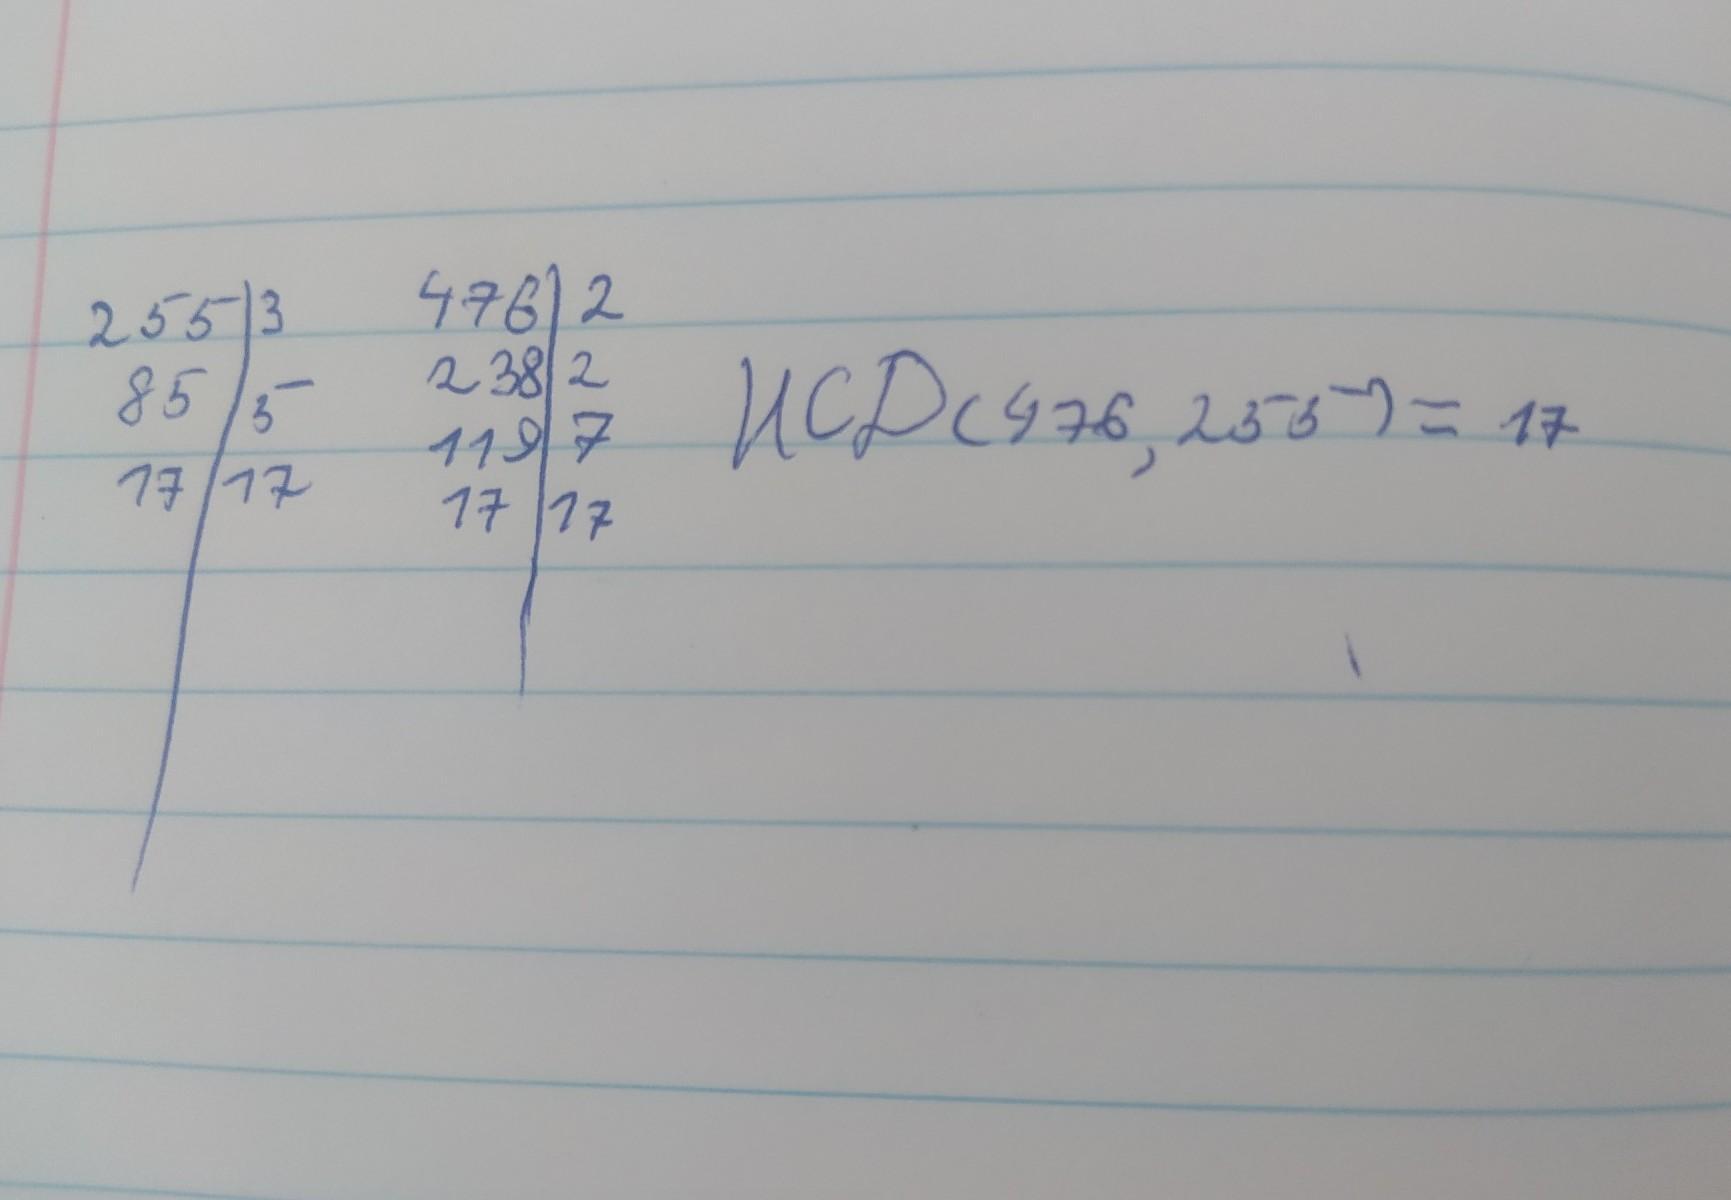 255 | 3
85 | 5
17 | 17
476 | 2
238 | 2
119 | 7
17 | 17
NCD(476, 255) = 17